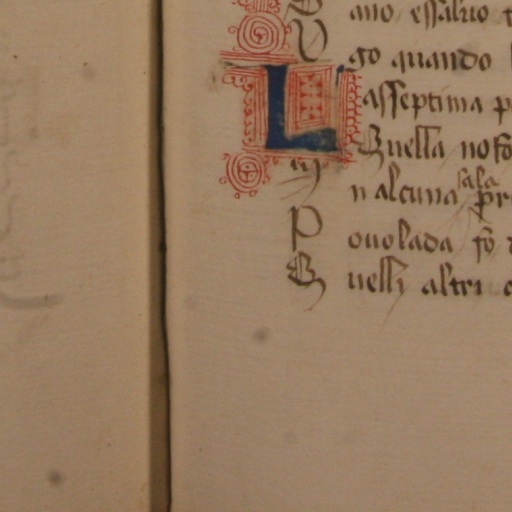 ano essaluo
V go quando
L asseptima p
Quella no fo
n alcuna sala pr
P ouolada fo
Quelli altri